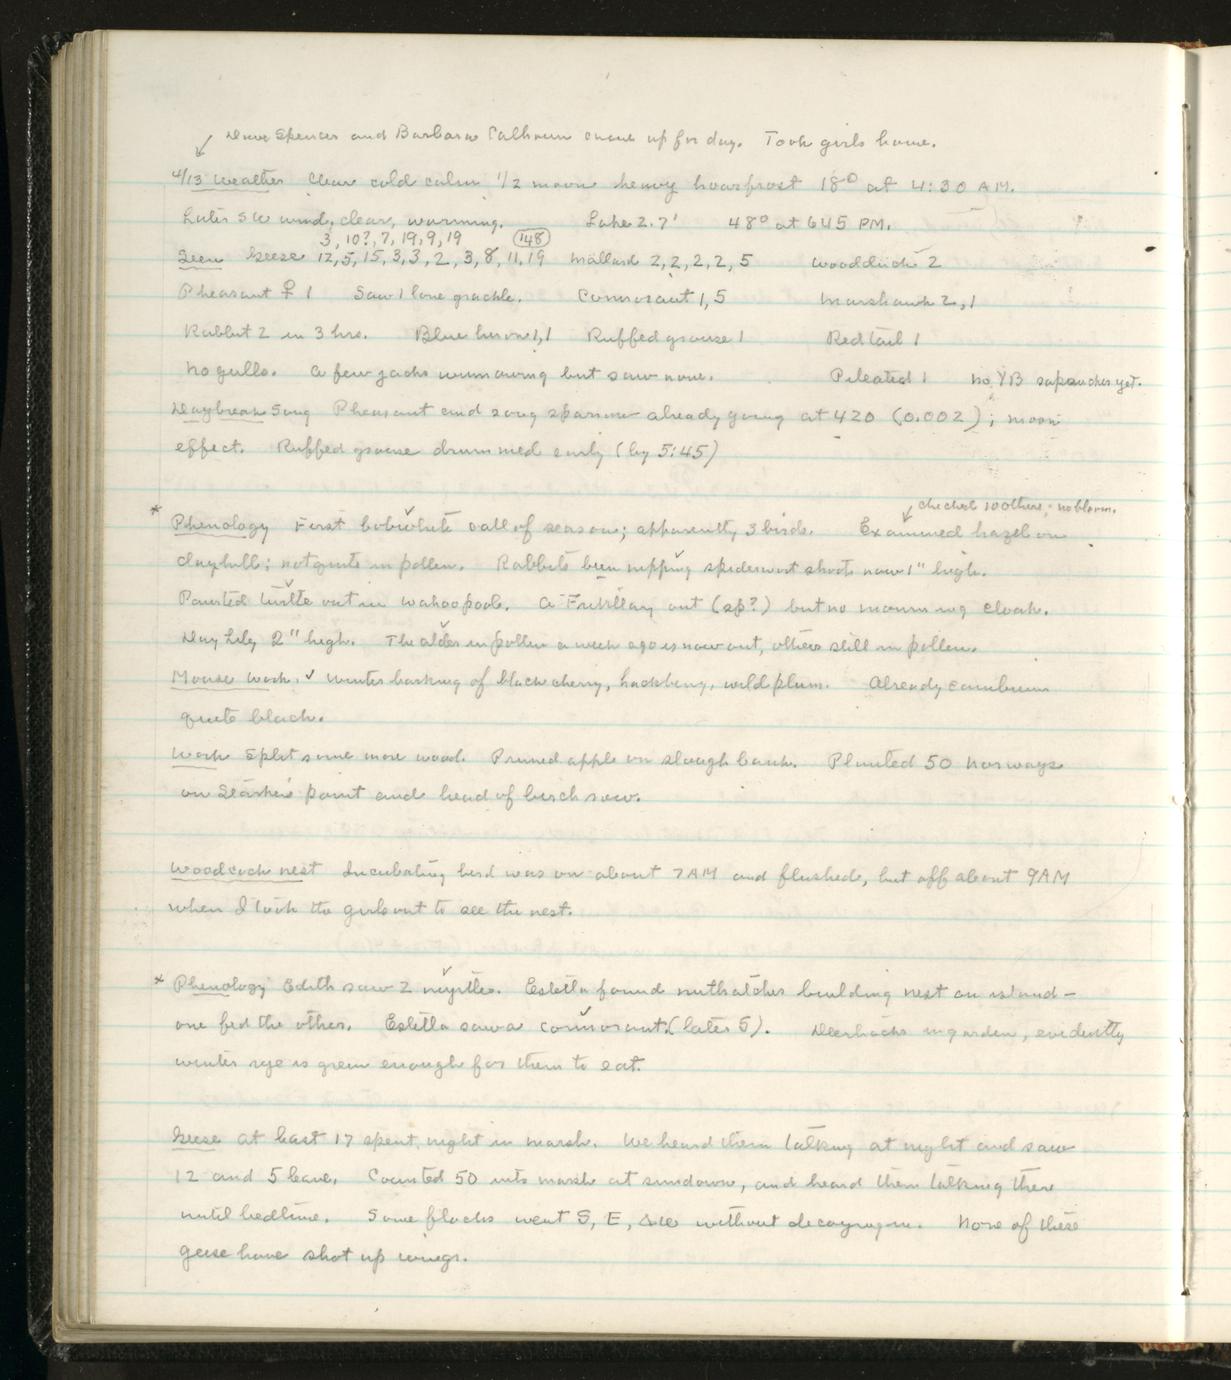 Dave Spencer and Barbara Calhoun came up for day. Took girls home.
4/13 Weather Clear cold calm 1/2 moon heavy hoarfrost 18° at 4:30 AM.
Later SW wind, clear, warming. Lake 2.7' 48° at 645 PM.
3, 10?, 7, 19, 9, 19 148
Seen Geese 12, 5, 15, 3, 3, 2, 3, 8, 11, 19 Mallard 2, 2, 2, 2, 5 Woodduck 2
Pheasant ♀ 1 Saw 1 lone grackle. Cormorant 1, 5 Marshawk 2, 1
Rabbit 2 in 3 hrs. Blue heron 1, 1 Ruffed grouse 1 Redtail 1
No gulls. A few jacks winnowing but saw none. Pileated 1 no YB sapsucker yet.
Daybreak Song Pheasant and song sparrow already going at 420 (0.002); moon
effect. Ruffed grouse drummed early (by 5:45)
checked 10 others; no bloom.
* Phenology First bobwhite call of season; apparently 3 birds. Examined hazel on
clayhill; not quite in pollen. Rabbits been nipping spiderwort shoots now 1" high.
Painted turtle out in wahoo pool. A Fritillary out (sp?) but no mourning cloak.
Day Lily 2" high. The alder in pollen a week ago is now out, others still in pollen.
Mouse work. ✓ Winter barking of black cherry, hackberry, wild plum. Already cambium
quite black.
Work Split some more wood. Pruned apple on slough bank. Planted 50 Norways
on point and head of birch row.
Woodcock nest Incubating bird was on about 7 AM and flushed, but off about 9 AM
when I took the girls out to see the nest.
* Phenology Edith saw 2 myrtle. Estella found nuthatches building nest on island -
one fed the other. Estella saw a cormorant (later 5). Deertracks in garden, evidently
winter rye is green enough for them to eat.
Geese At least 17 spent night in marsh. We heard them talking at night and saw
12 and 5 leave. Counted 50 into marsh at sundown, and heard them talking there
until bedtime. Some flocks went S, E, & W without decoying in. None of these
geese have shot up wings.